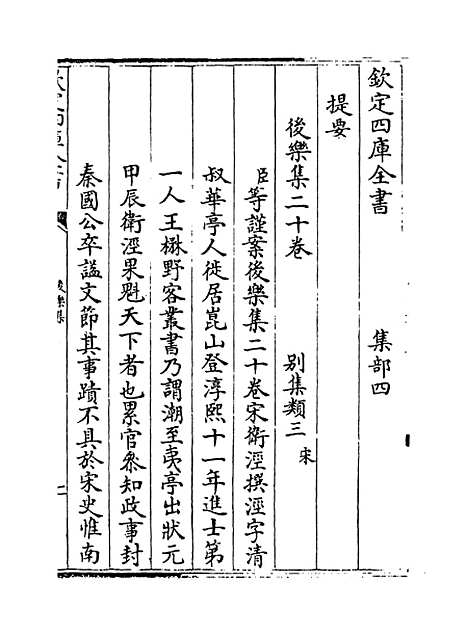 欽定四庫全書　集部四
提要
後樂集二十卷　別集類三　宋
臣等謹案後樂集二十卷宋衛涇撰涇字清
叔華亭人徙居崑山登淳熙十一年進士第
一人王楙野客叢書乃謂潮至夷亭出狀元
甲辰衛涇果魁天下者也累官叅知政事封
秦國公卒諡文節其事蹟不具於宋史惟南
後樂集